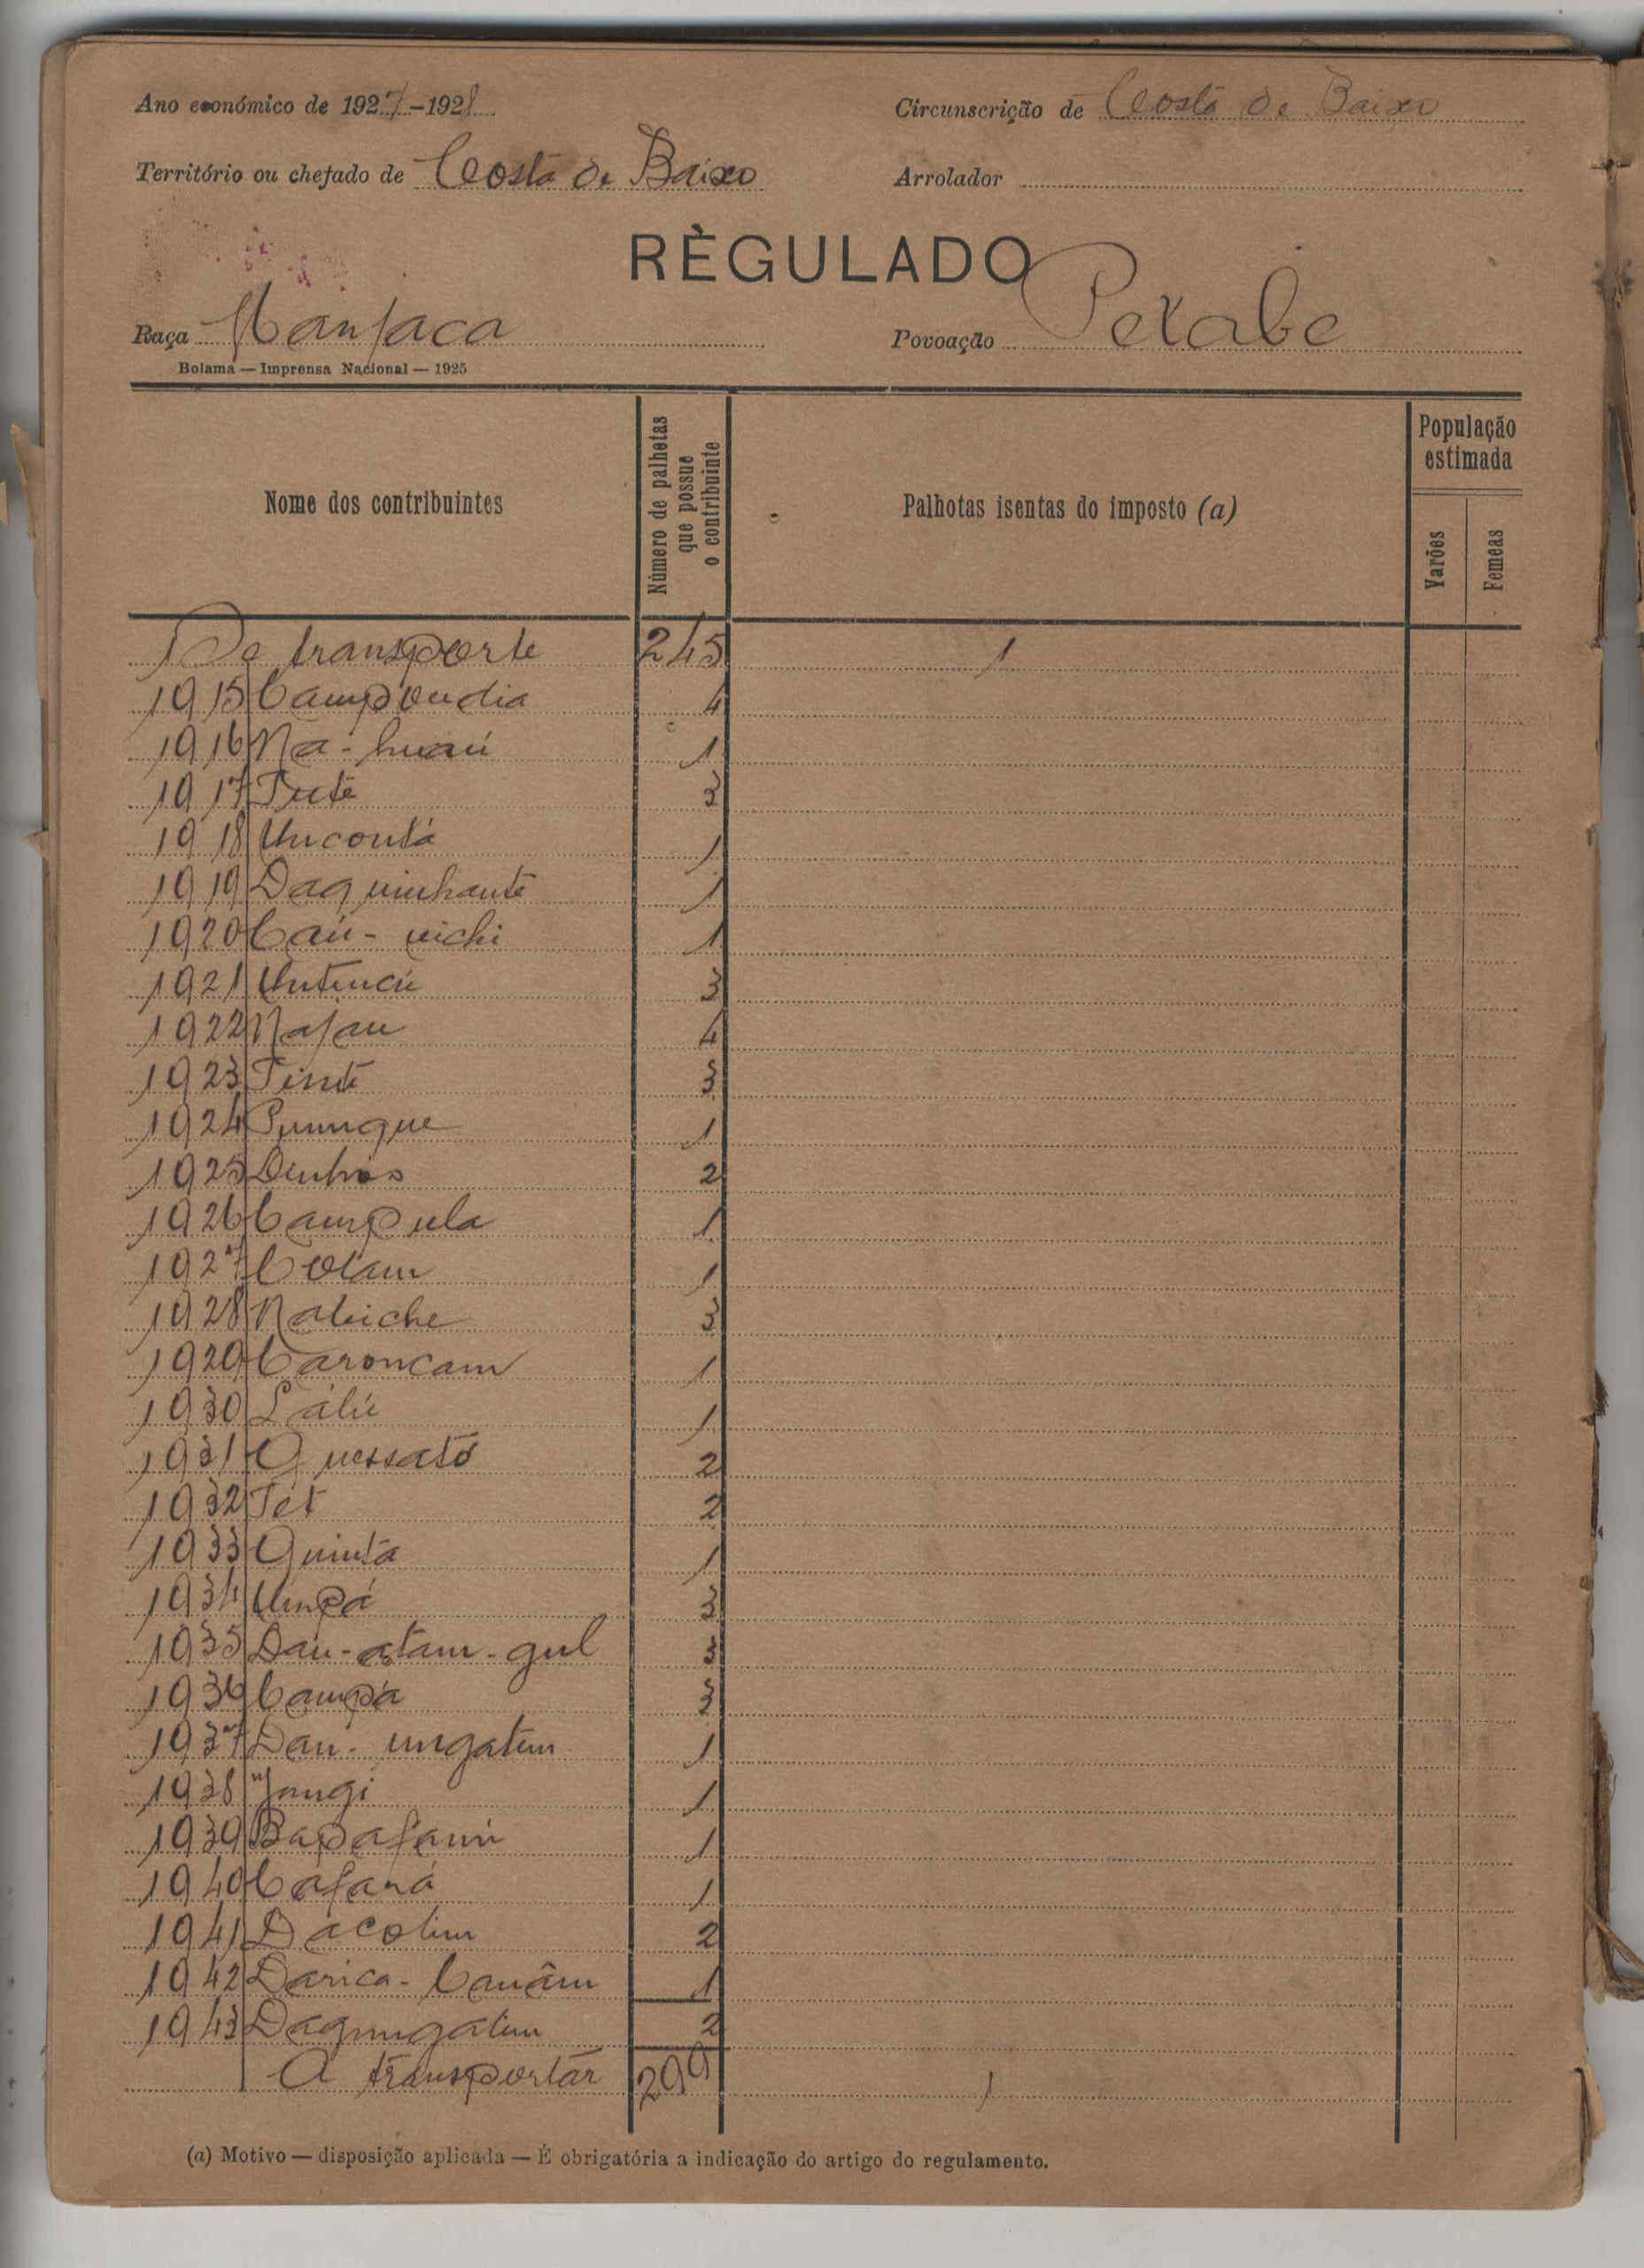 Ano económico de 1927-1928
Circunscrição de Costa de Baixo
Território ou chefado de Costa de Baixo
Arrolador
RÈGULADO
Raça Manjaca
Povoação Pexabe
Bolama — Imprensa Nacional — 1925
Nome dos contribuintes
Número de palhotas que possue o contribuinte
Palhotas isentas do imposto (a)
População estimada
Varões
Femeas
De transporte 245 1
1915 Campoudia 4
1916 Na-huaú 1
1917 Tute 3
1918 Uncoutá 1
1919 Daquinhante 1
1920 Caú-vichi 1
1921 Untencú 3
1922 Najau 4
1923 Tinte 3
1924 Pumgue 1
1925 2
1926 Campula 1
1927 Cotam 1
1928 Nabiche 3
1929 Caroncam 1
1930 Lálú 1
1931 Quessató 2
1932 Tet 2
1933 Quintá 1
1934 Umpá 3
1935 Dau-atam-gul 3
1936 Campá 3
1937 Dau-ungatim 1
1938 Jangi 1
1939 Bapafami 1
1940 Cafará 1
1941 Dacolim 2
1942 Darica-Canâm 1
1943 Dagungatim 2
A transportar 299 1
(a) Motivo — disposição aplicada — É obrigatória a indicação do artigo do regulamento.